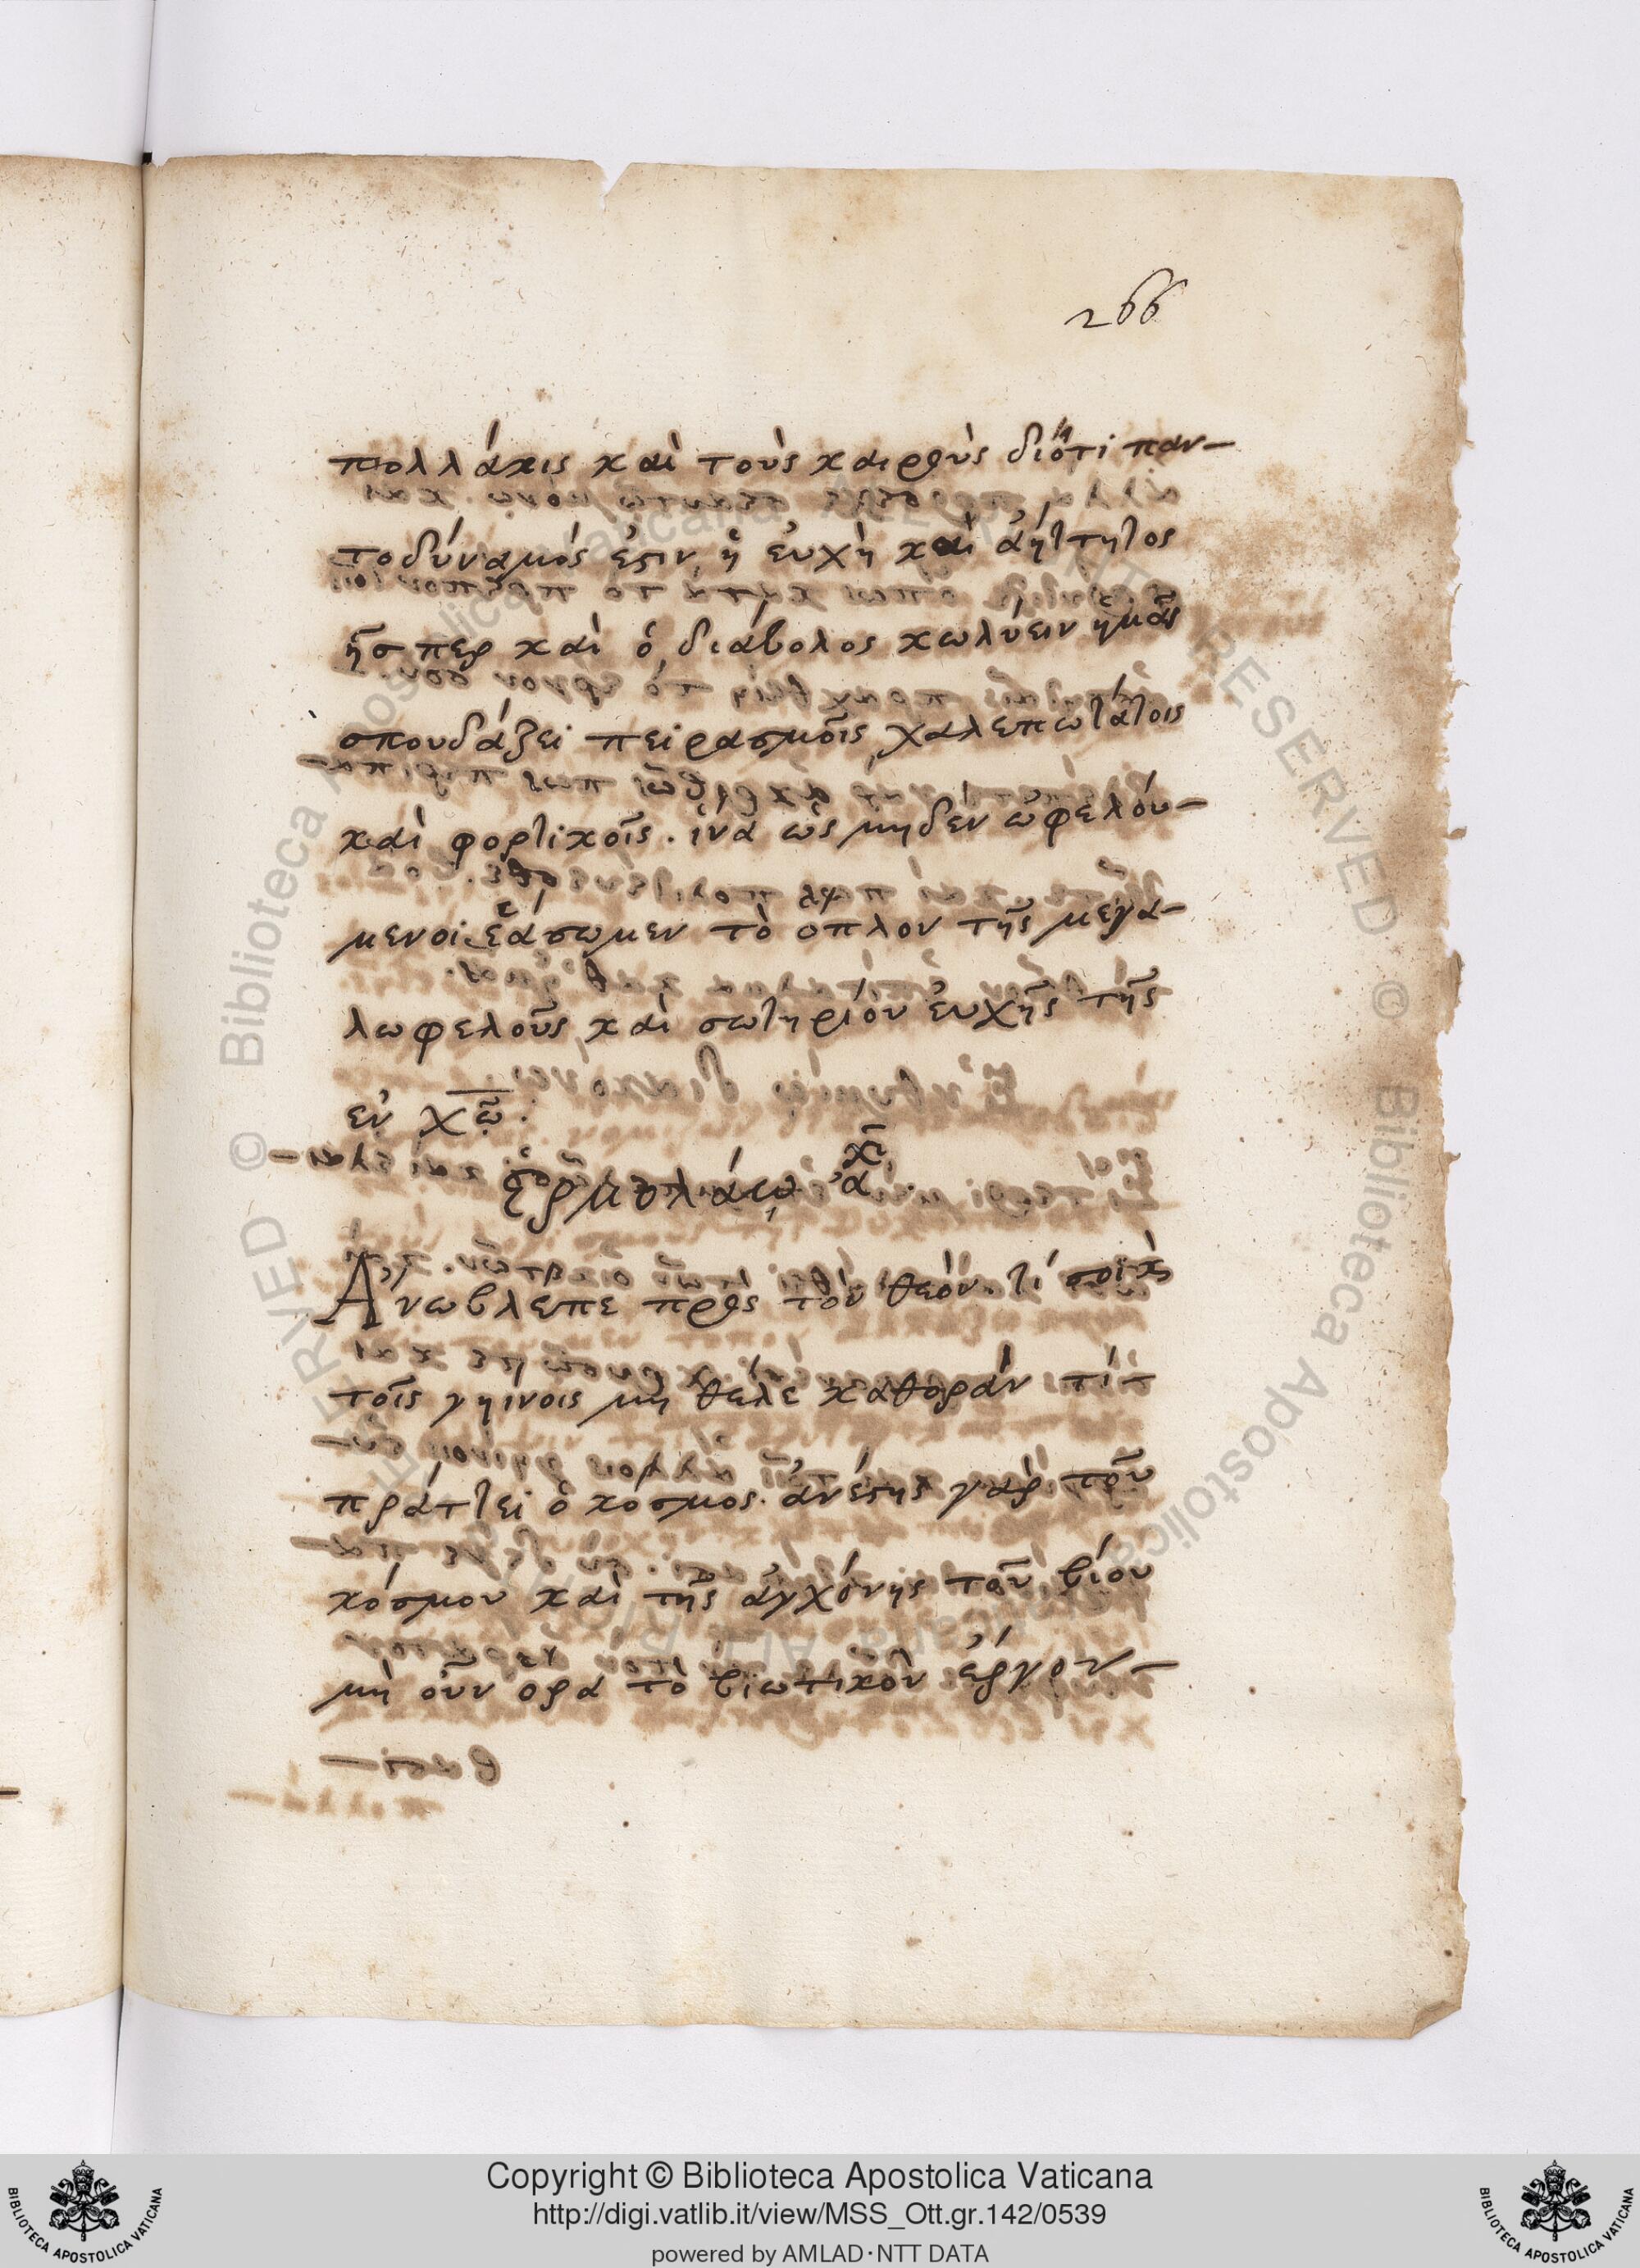 266
πολλάκις καὶ τοὺς καιροὺς διότι παν-
τοδύναμός ἐστιν, ἡ ἐυχὴ καὶ ἀήττητος
ῆσπερ καὶ ὁ διάβολος κωλύειν ἡμᾶς
σπουδάζει πειρασμοῖς, χαλεπωτάτοις
καὶ φορτικοῖς. ἵνα ὡς μηδὲν ὠφελόυ-
μενοι ἐάσωμεν τὸ οπλον τῆς μεγα-
λωφελοῦς καὶ σωτηρίου ἐυχῆς τῆς
ἐν χῷ.
Ἀνωβλεπε πρὸς τὸν θεὸν. τί
τοῖς γηίνοις μὴ θέλε καθορᾶν τί
πράττει ὁ κόσμος. ἀνέστης γὰρ τοῦ
κόσμου καὶ τῆς ἀγχόνης τοῦ βίου
μὴ οὖν ορα τὸ βιωτικὸν ἐργον-
Copyright © Biblioteca Apostolica Vaticana
http://digi.vatlib.it/view/MSS_Ott.gr.142/0539
powered by AMLAD·NTT DATA
BIBLIOTECA APOSTOLICA VATICANA
BIBLIOTECA APOSTOLICA VATICANA